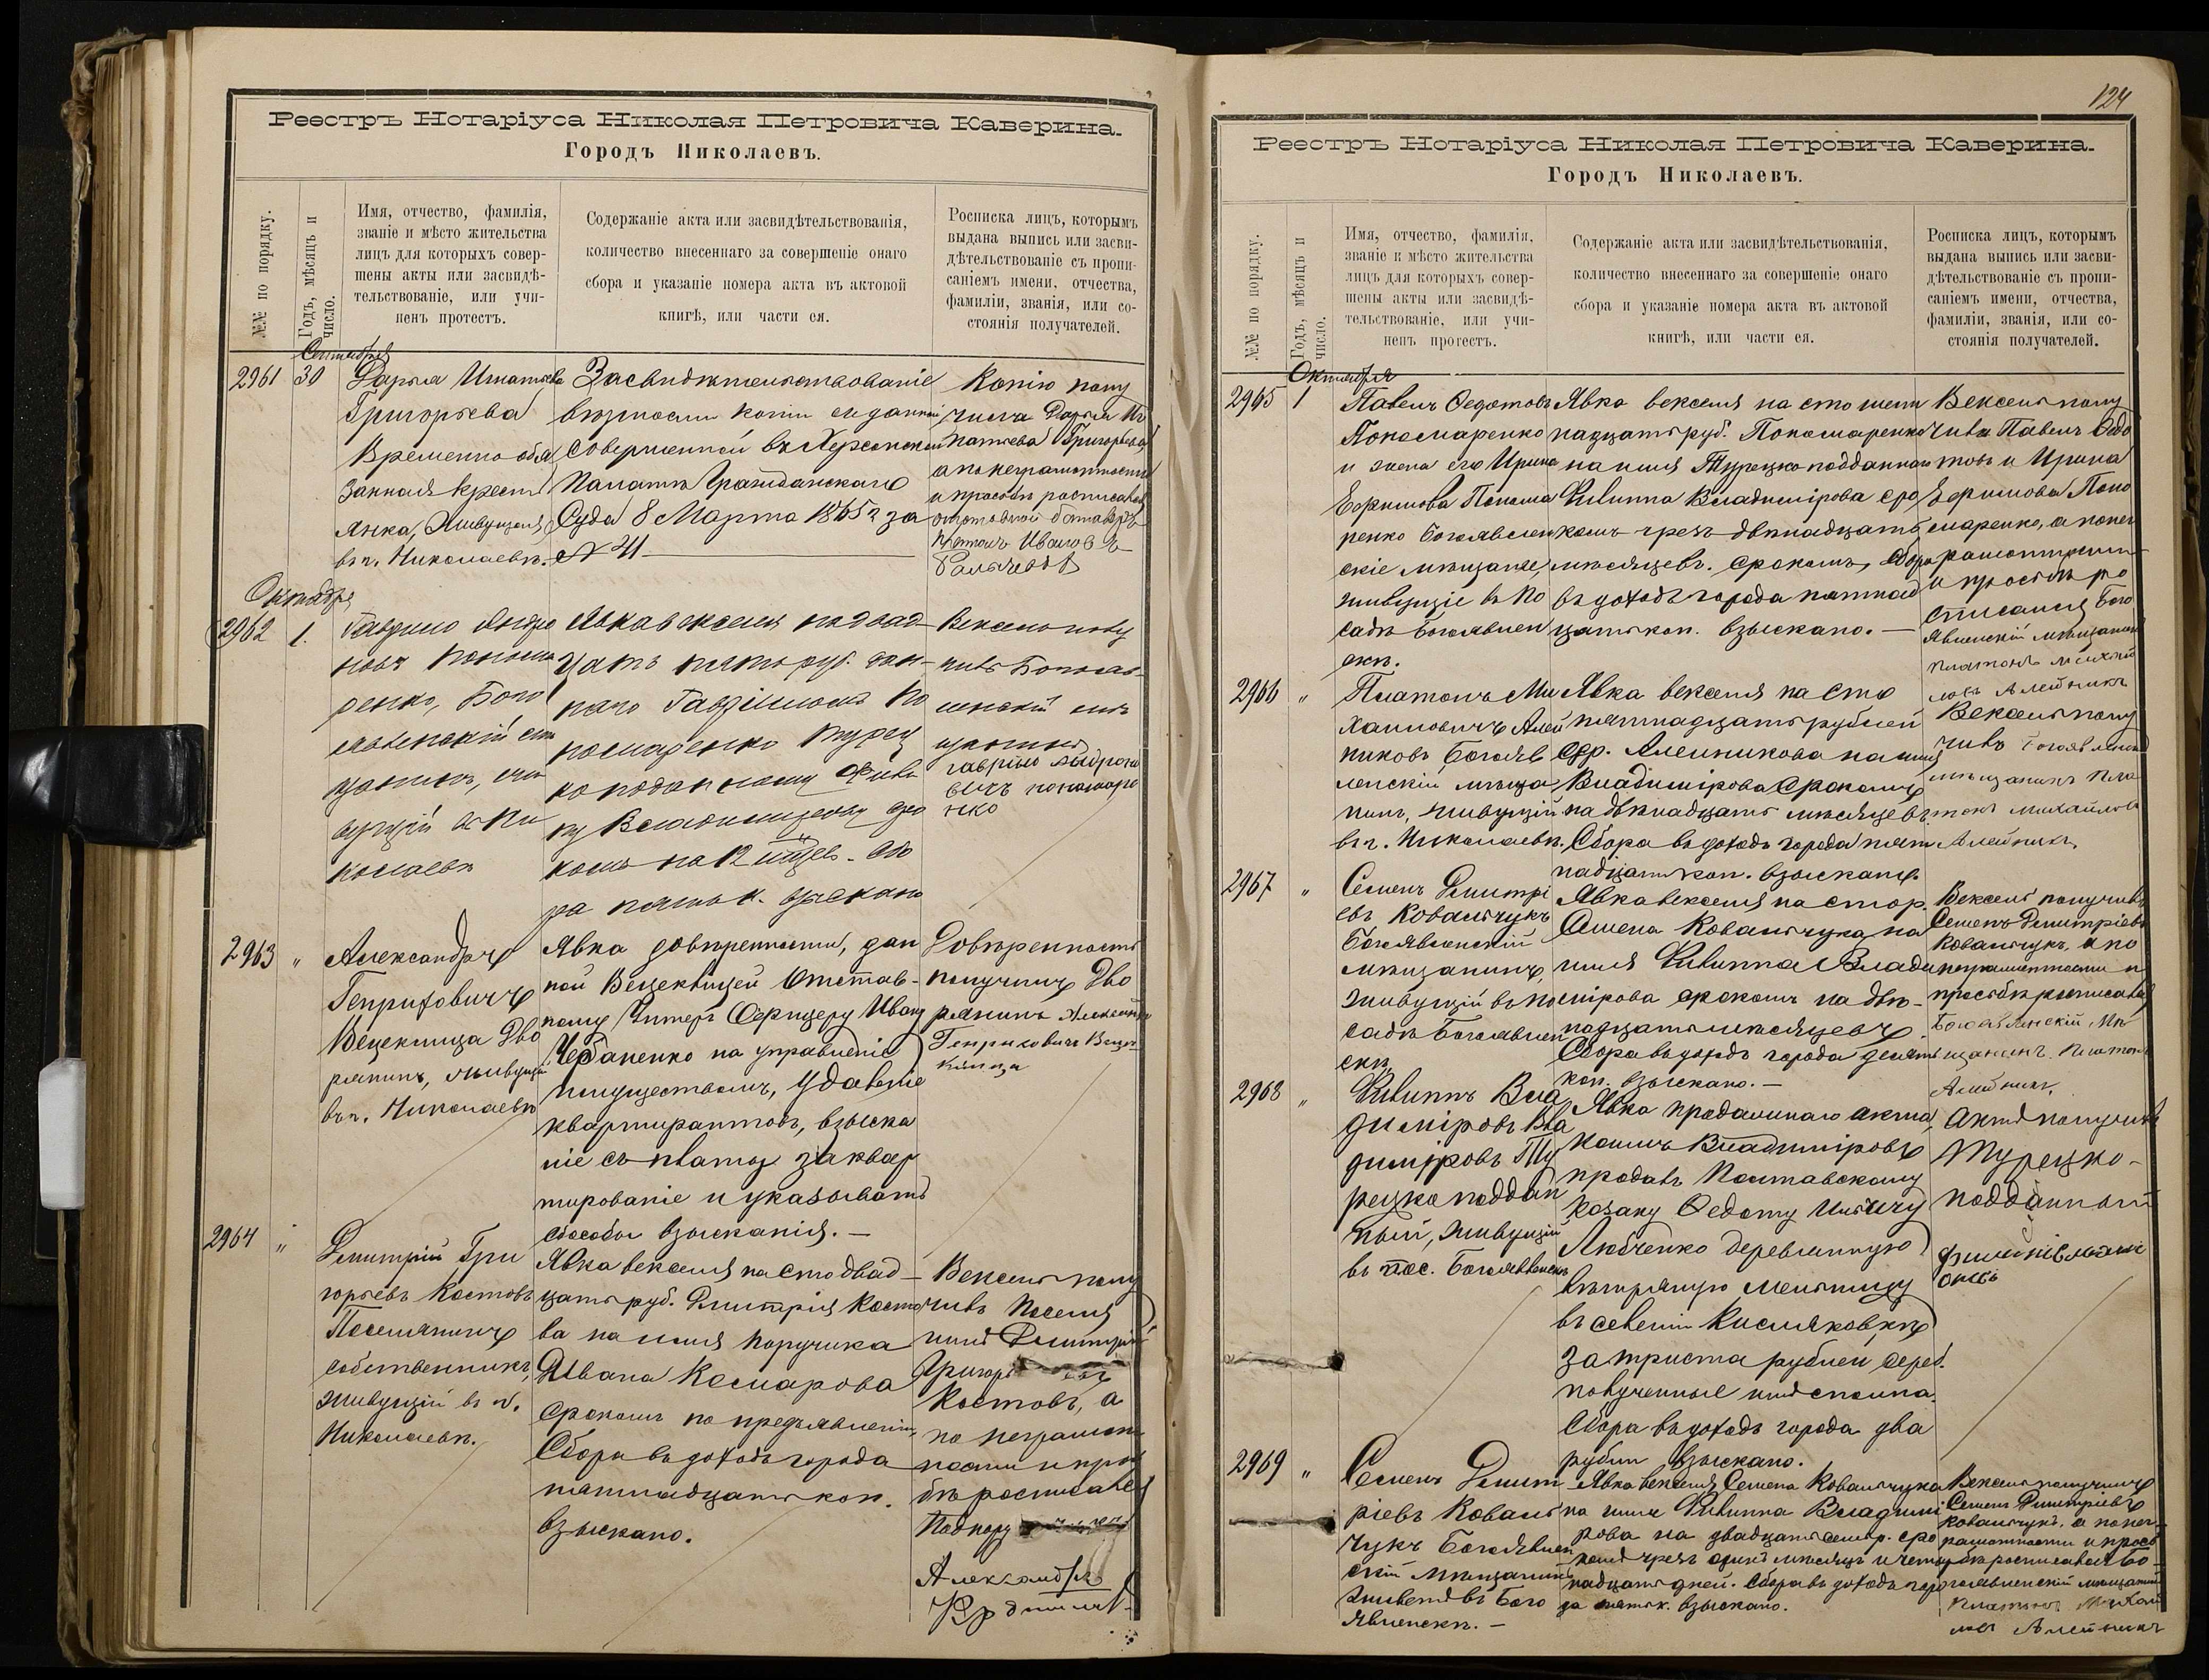 Реестръ Нотаріуса Николая Петровича Каверина.
Городъ Николаевъ.
№№ по порядку.
Годъ, мѣсяцъ и
число.
Имя, отчество, фамилія,
званіе и мѣсто жительства
лицъ для которыхъ совер-
шены акты или засвидѣ-
тельствованіе, или учи-
ненъ протестъ.
Содержаніе акта или засвидѣтельствованія,
количество внесеннаго за совершеніе онаго
сбора и указаніе номера акта въ актовой
книгѣ, или части ея.
Росписка лицъ, которымъ
выдана выпись или засви-
дѣтельствованіе съ пропи-
саніемъ имени, отчества,
фамиліи, званія, или со-
стоянія получателей.
Сентября
2961 30
Дарья Игнатьева
Григорьева
Временно обя
занная крест
янка, живущая
въ г. Николаевѣ.
Засвидѣтельствованіе
вѣрности копіи съ данной
совершенной въ Херсонской
Палатѣ Гражданскаго
Суда 8 Марта 1865 г за
№ 41
Копію полу
чила Дарья Иг
натьева Григорьева,
а по неграмотности
и просьбѣ росписался
отставной
Иванов
Октября
2962 1.
Гаврило Андро
новъ Понома
ренко, Бого
явленскій мѣ
щанинъ, жи
вущій въ Ни
колаевѣ
Явка векселя на двад-
цать пять руб. дан-
наго Гавріиломъ По
номаренко Турец
ко подданному Филип
пу Владимирову сро
комъ на 12 мѣсцев. Сбо
ра пять к. взыскано
Вексель полу
чилъ Богояв-
ленскій мѣ
щанинъ
гаврило андроно
вичъ понамаре
нко
2963 "
Александръ
Генриховичъ
Вецекница Дво
рянинъ, живущій
въ г. Николаевѣ
Явка довѣренности, дан
ной Вецекницей Отстав-
ному Унтеръ Офицеру Ивану
Чебаненко на управленіе
имуществомъ, удаленіе
квартирантовъ, взыска
ніе съ платы за квар
тированіе и указывать
способы взысканія. —
Довѣренность
получилъ Дво
рянинъ Александръ
Генриховичъ Веце-
кница
2964 "
Дмитрій Гри
горьевъ Костовъ
Поселянинъ
собственникъ,
живущій въ г.
Николаевѣ.
Явка векселя на сто двад-
цать руб. Дмитрія Косто
ва на имя Поручика
Ивана Комарова
срокомъ по предъявленіи,
Сбора въ доходъ города
пятнадцать коп.
взыскано.
Вексель полу
чилъ Поселя
нинъ Дмитрій
Григорьевъ
Костовъ, а
по неграмот
ности и прось
бѣ росписался
Подпору
Александръ
124
Реестръ Нотаріуса Николая Петровича Каверина.
Городъ Николаевъ.
№№ по порядку.
Годъ, мѣсяцъ и
число.
Имя, отчество, фамилія,
званіе и мѣсто жительства
лицъ для которыхъ совер-
шены акты или засвидѣ-
тельствованіе, или учи-
ненъ протестъ.
Содержаніе акта или засвидѣтельствованія,
количество внесеннаго за совершеніе онаго
сбора и указаніе номера акта въ актовой
книгѣ, или части ея.
Росписка лицъ, которымъ
выдана выпись или засви-
дѣтельствованіе съ пропи-
саніемъ имени, отчества,
фамиліи, званія, или со-
стоянія получателей.
Октября
2965 1
Павелъ Федотовъ
Пономаренко
и жена его Ирина
Ефимова Понома
ренко Богоявлен
скіе мѣщане,
живущіе въ По
садѣ Богоявлен
скѣ.
Явка векселя на сто шест
надцать руб. Пономаренко
на имя Турецко подданнаго
Филиппа Владимірова сро
комъ чрезъ двѣнадцать
мѣсяцевъ. срокомъ, Сбора
въ доходъ города пятнад
цать коп. взыскано. —
Вексель полу
чила Павелъ Федо
товъ и Ирина
Ефимова Поно
маренко, а понег
рамотности
и просьбѣ ро
списался Бого
явленскій мѣщанин
платонъ михай
ловъ Алейникъ
2966 "
Платонъ Ми
хаиловичъ Алей
никовъ Богояв
ленскій мѣща
нинъ, живущій
въ г. Николаевѣ.
Явка векселя на сто
пятнадцать рублей
сер. Алейникова на имя
Владимірова срокомъ
на двѣнадцать мѣсяцевъ.
Сбора въ доходъ города пят
надцать коп. взыскано.
Вексель полу
чилъ Богоявленс
мѣщанинъ Пла
тонъ михайловъ
Алейникъ.
2967 "
Семенъ Дмитрі
евъ Ковальчукъ
Богоявленскій
мѣщанинъ,
живущій въ по
садѣ Богоявлен
скѣ
Явка векселя на сто р.
Семена Ковальчука на
имя Филиппа Влади
мірова срокомъ на двѣ-
надцать мѣсяцевъ
Сбора въ доходъ города десять
коп. взыскано. —
Вексель получилъ
Семенъ Дмитріевъ
Ковальчукъ, а по
неграмотности и
просьбѣ росписался
Богоявленскій Мѣ
щанинъ Платонъ
Алейникъ.
2968 "
Филиппъ Вла
диміровъ Вла
диміровъ Ту
рецко поддан
ный, живущій
въ пос. Богоявленск
Явка продажнаго акта,
коимъ Владиміровъ
продалъ Полтавскому
козаку Федоту Ильичу
Любченко деревянную
вѣтряную мельницу
въ селеніи Кисляковкѣ
за триста рублей сереб.
полученные имъ сполна.
Сбора въ доходъ города два
рубли взыскано.
Актъ получилъ
Турецко-
подданный
2969 "
Семенъ Дмит
ріевъ Коваль
чукъ Богоявлен
скій мѣщанинъ
живетъ въ Бого
явленскѣ. —
Явка векселя Семена Ковальчука
на имя Филиппа Владими
рова на двадцать семь р. сро
комъ чрезъ одинъ мѣсяцъ и четыр
надцать дней. Сбора въ доходъ горо
да пять к. взыскано.
Вексель получилъ
Семенъ Дмитріевъ
Ковальчукъ, а понег
рамотности и прось
бѣ росписался Бо-
гоявленскій мѣщанинъ
Платонъ Михай
ловъ Алейникъ